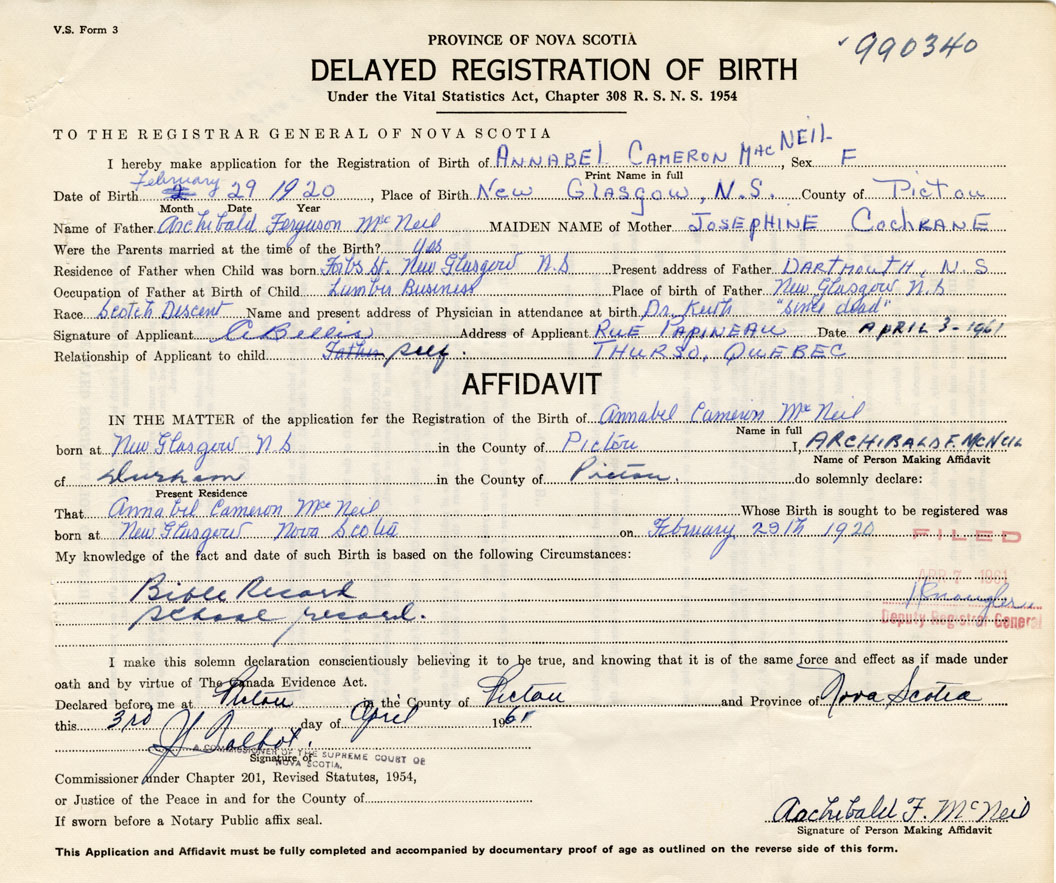 V.S. Form 3
990340
PROVINCE OF NOVA SCOTIA
DELAYED REGISTRATION OF BIRTH
Under the Vital Statistics Act, Chapter 308 R. S. N. S. 1954
TO THE REGISTRAR GENERAL OF NOVA SCOTIA
I hereby make application for the Registration of Birth of ANNABEL CAMERON MACNEIL, Sex F
Print Name in full
Date of Birth February 29 1920, Place of Birth New Glasgow, N.S. County of Pictou
Month Date Year
Name of Father Archibald Ferguson McNeil MAIDEN NAME of Mother JOSEPHINE COCHRANE
Were the Parents married at the time of the Birth? yes
Residence of Father when Child was born Forbs St. New Glasgow N.S Present address of Father DARTMOUTH, N.S
Occupation of Father at Birth of Child Lumber Business Place of birth of Father New Glasgow N.S
Race Scotch Descent Name and present address of Physician in attendance at birth Dr. Keith "since dead"
Signature of Applicant A Bellis Address of Applicant RUE PAPINEAU Date APRIL 3-1961
Relationship of Applicant to child Father self. THURSO, QUEBEC
AFFIDAVIT
IN THE MATTER of the application for the Registration of the Birth of Annabel Cameron McNeil
Name in full
born at New Glasgow N.S in the County of Pictou I, ARCHIBALD F. MCNEIL
Name of Person Making Affidavit
of Durham in the County of Pictou. do solemnly declare:
Present Residence
That Annabel Cameron McNeil Whose Birth is sought to be registered was
born at New Glasgow Nova Scotia on February 29th 1920
FILED
My knowledge of the fact and date of such Birth is based on the following Circumstances:
APR 7 1961
Bible Record
School record.
Deputy Registrar General
I make this solemn declaration conscientiously believing it to be true, and knowing that it is of the same force and effect as if made under
oath and by virtue of The Canada Evidence Act.
Declared before me at Pictou in the County of Pictou and Province of Nova Scotia
this 3rd day of April 1961
J Talbot.
A COMMISSIONER OF THE SUPREME COURT OF
NOVA SCOTIA.
Signature of
Commissioner under Chapter 201, Revised Statutes, 1954,
or Justice of the Peace in and for the County of
If sworn before a Notary Public affix seal.
Archibald F. McNeil
Signature of Person Making Affidavit
This Application and Affidavit must be fully completed and accompanied by documentary proof of age as outlined on the reverse side of this form.